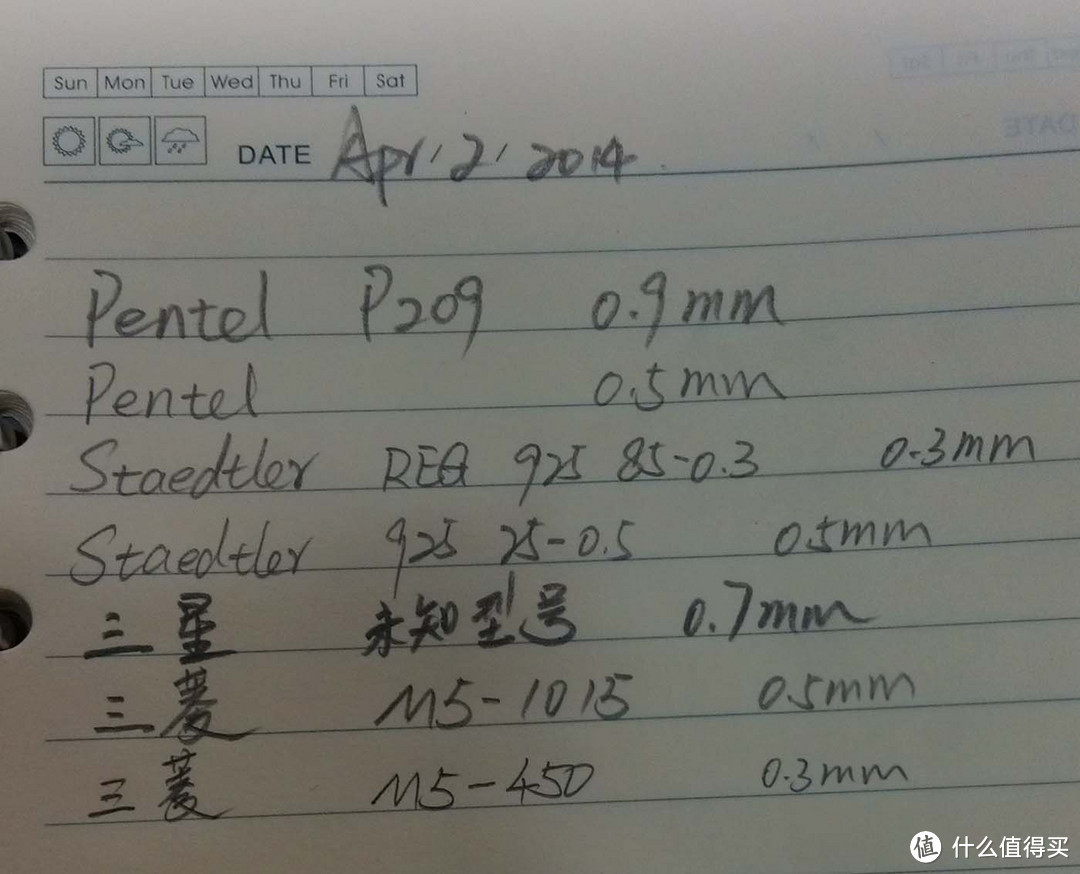 Sun Mon Tue Wed Thu Fri Sat
DATE Apr, 2, 2014
Pentel P209 0.9mm
Pentel 0.5mm
Staedtler REG 925 85-0.3 0.3mm
Staedtler 925 25-0.5 0.5mm
三星 未知型号 0.7mm
三菱 M5-1015 0.5mm
三菱 M5-450 0.3mm
值 什么值得买